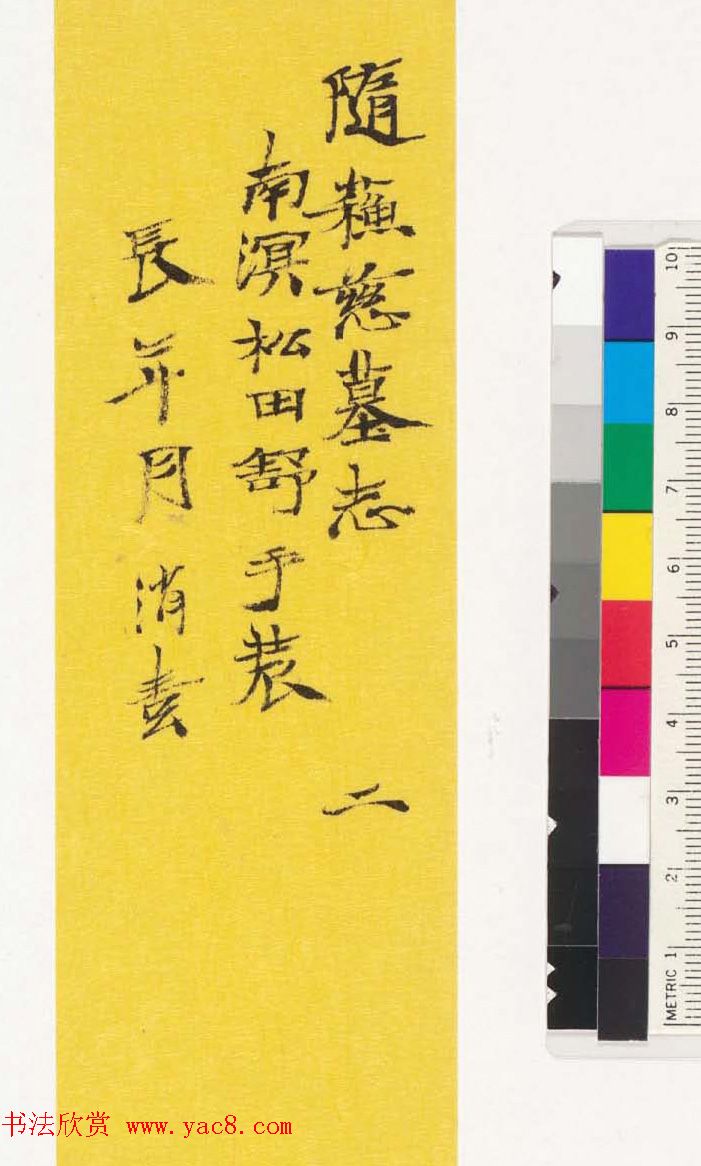 隨蘇慈墓志 二
南溟松田舒手裝
長 月消
10 9 8 7 6 5 4 3 2 METRIC 1
书法欣赏 www.yac8.com